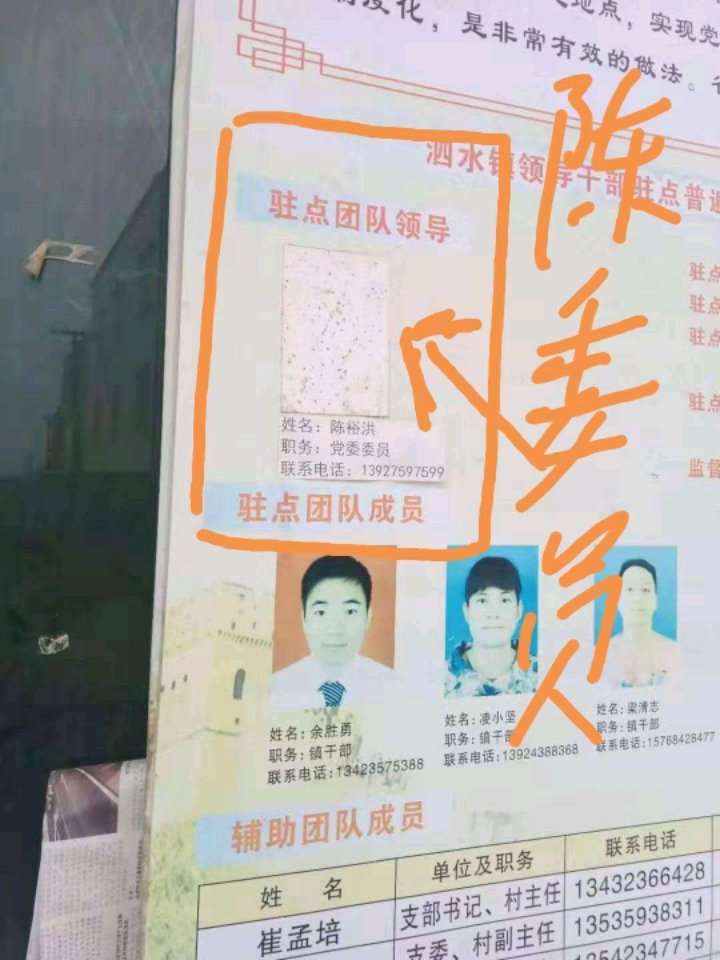 度化，是非常有效的做法。
地点，实现党
泗水镇领导干部驻点普遍
驻点团队领导
驻点
驻点
驻点
驻点
监督
姓名：陈裕洪
职务：党委委员
联系电话：13927597599
陈委员
驻点团队成员
姓名：余胜勇
职务：镇干部
联系电话：13423575388
姓名：凌小坚
职务：镇干部
联系电话：13924388368
姓名：梁清志
职务：镇干部
联系电话：15768428477
辅助团队成员
姓 名 单位及职务 联系电话
崔孟培 支部书记、村主任 13432366428
支委、村副主任 13535938311
13542347715